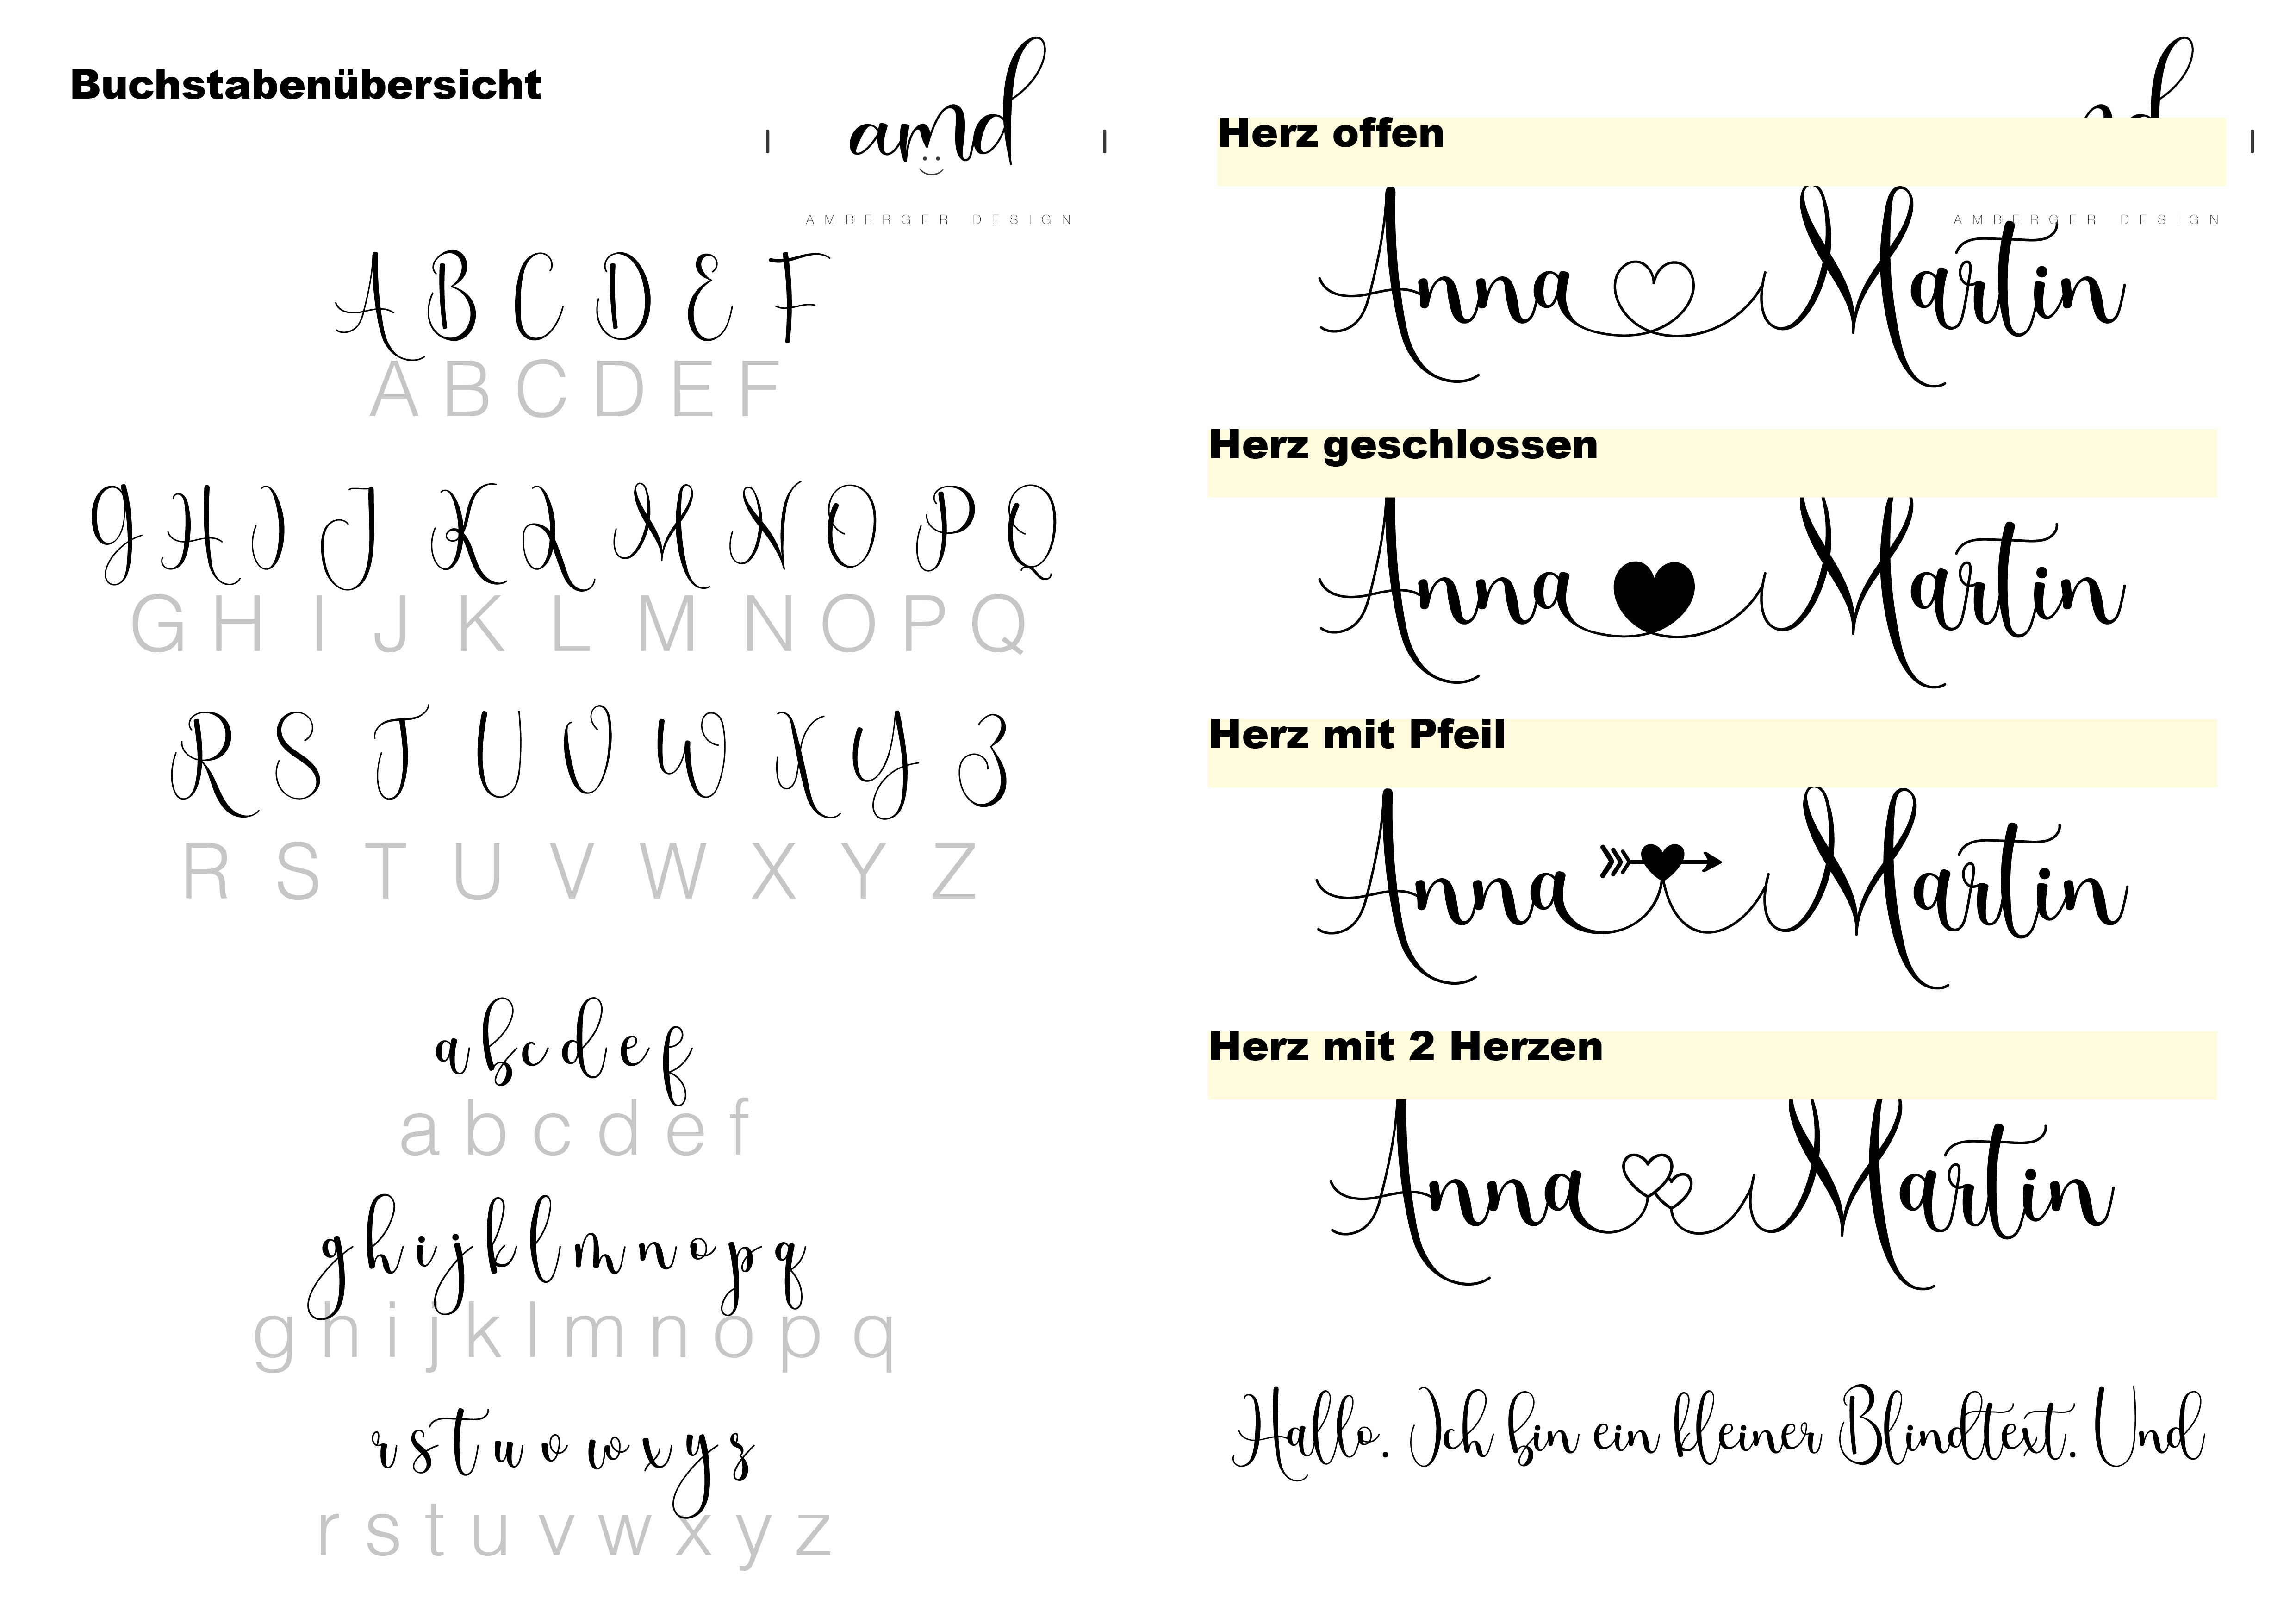 Buchstabenübersicht
amd
AMBERGER DESIGN
A B C D E F
A B C D E F
G H I J K L M N O P Q
G H I J K L M N O P Q
R S T U V W X Y Z
R S T U V W X Y Z
a b c d e f
a b c d e f
g h i j k l m n o p q
g h i j k l m n o p q
r s t u v w x y z
r s t u v w x y z
Herz offen
AMBERGER DESIGN
Anna Martin
Herz geschlossen
Anna Martin
Herz mit Pfeil
Anna Martin
Herz mit 2 Herzen
Anna Martin
Hallo. Ich bin ein kleiner Blindtext. Und